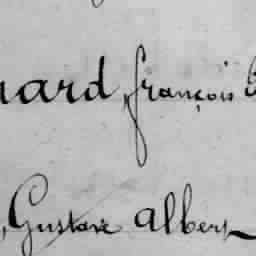 nard, françois
, Gustave Albert